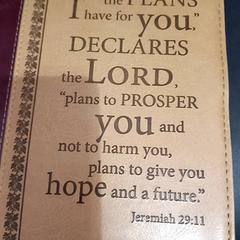 the PLANS
I have for you,"
DECLARES
the LORD,
"plans to PROSPER
you and
not to harm you,
plans to give you
hope and a future."
Jeremiah 29:11